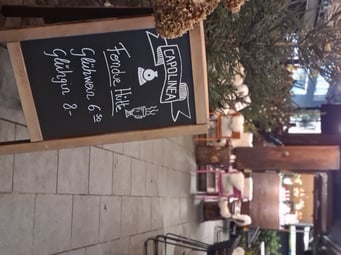 CAPOLINEA
Fondue Hütte
Glühwein 6.50
Glühgin 8.-